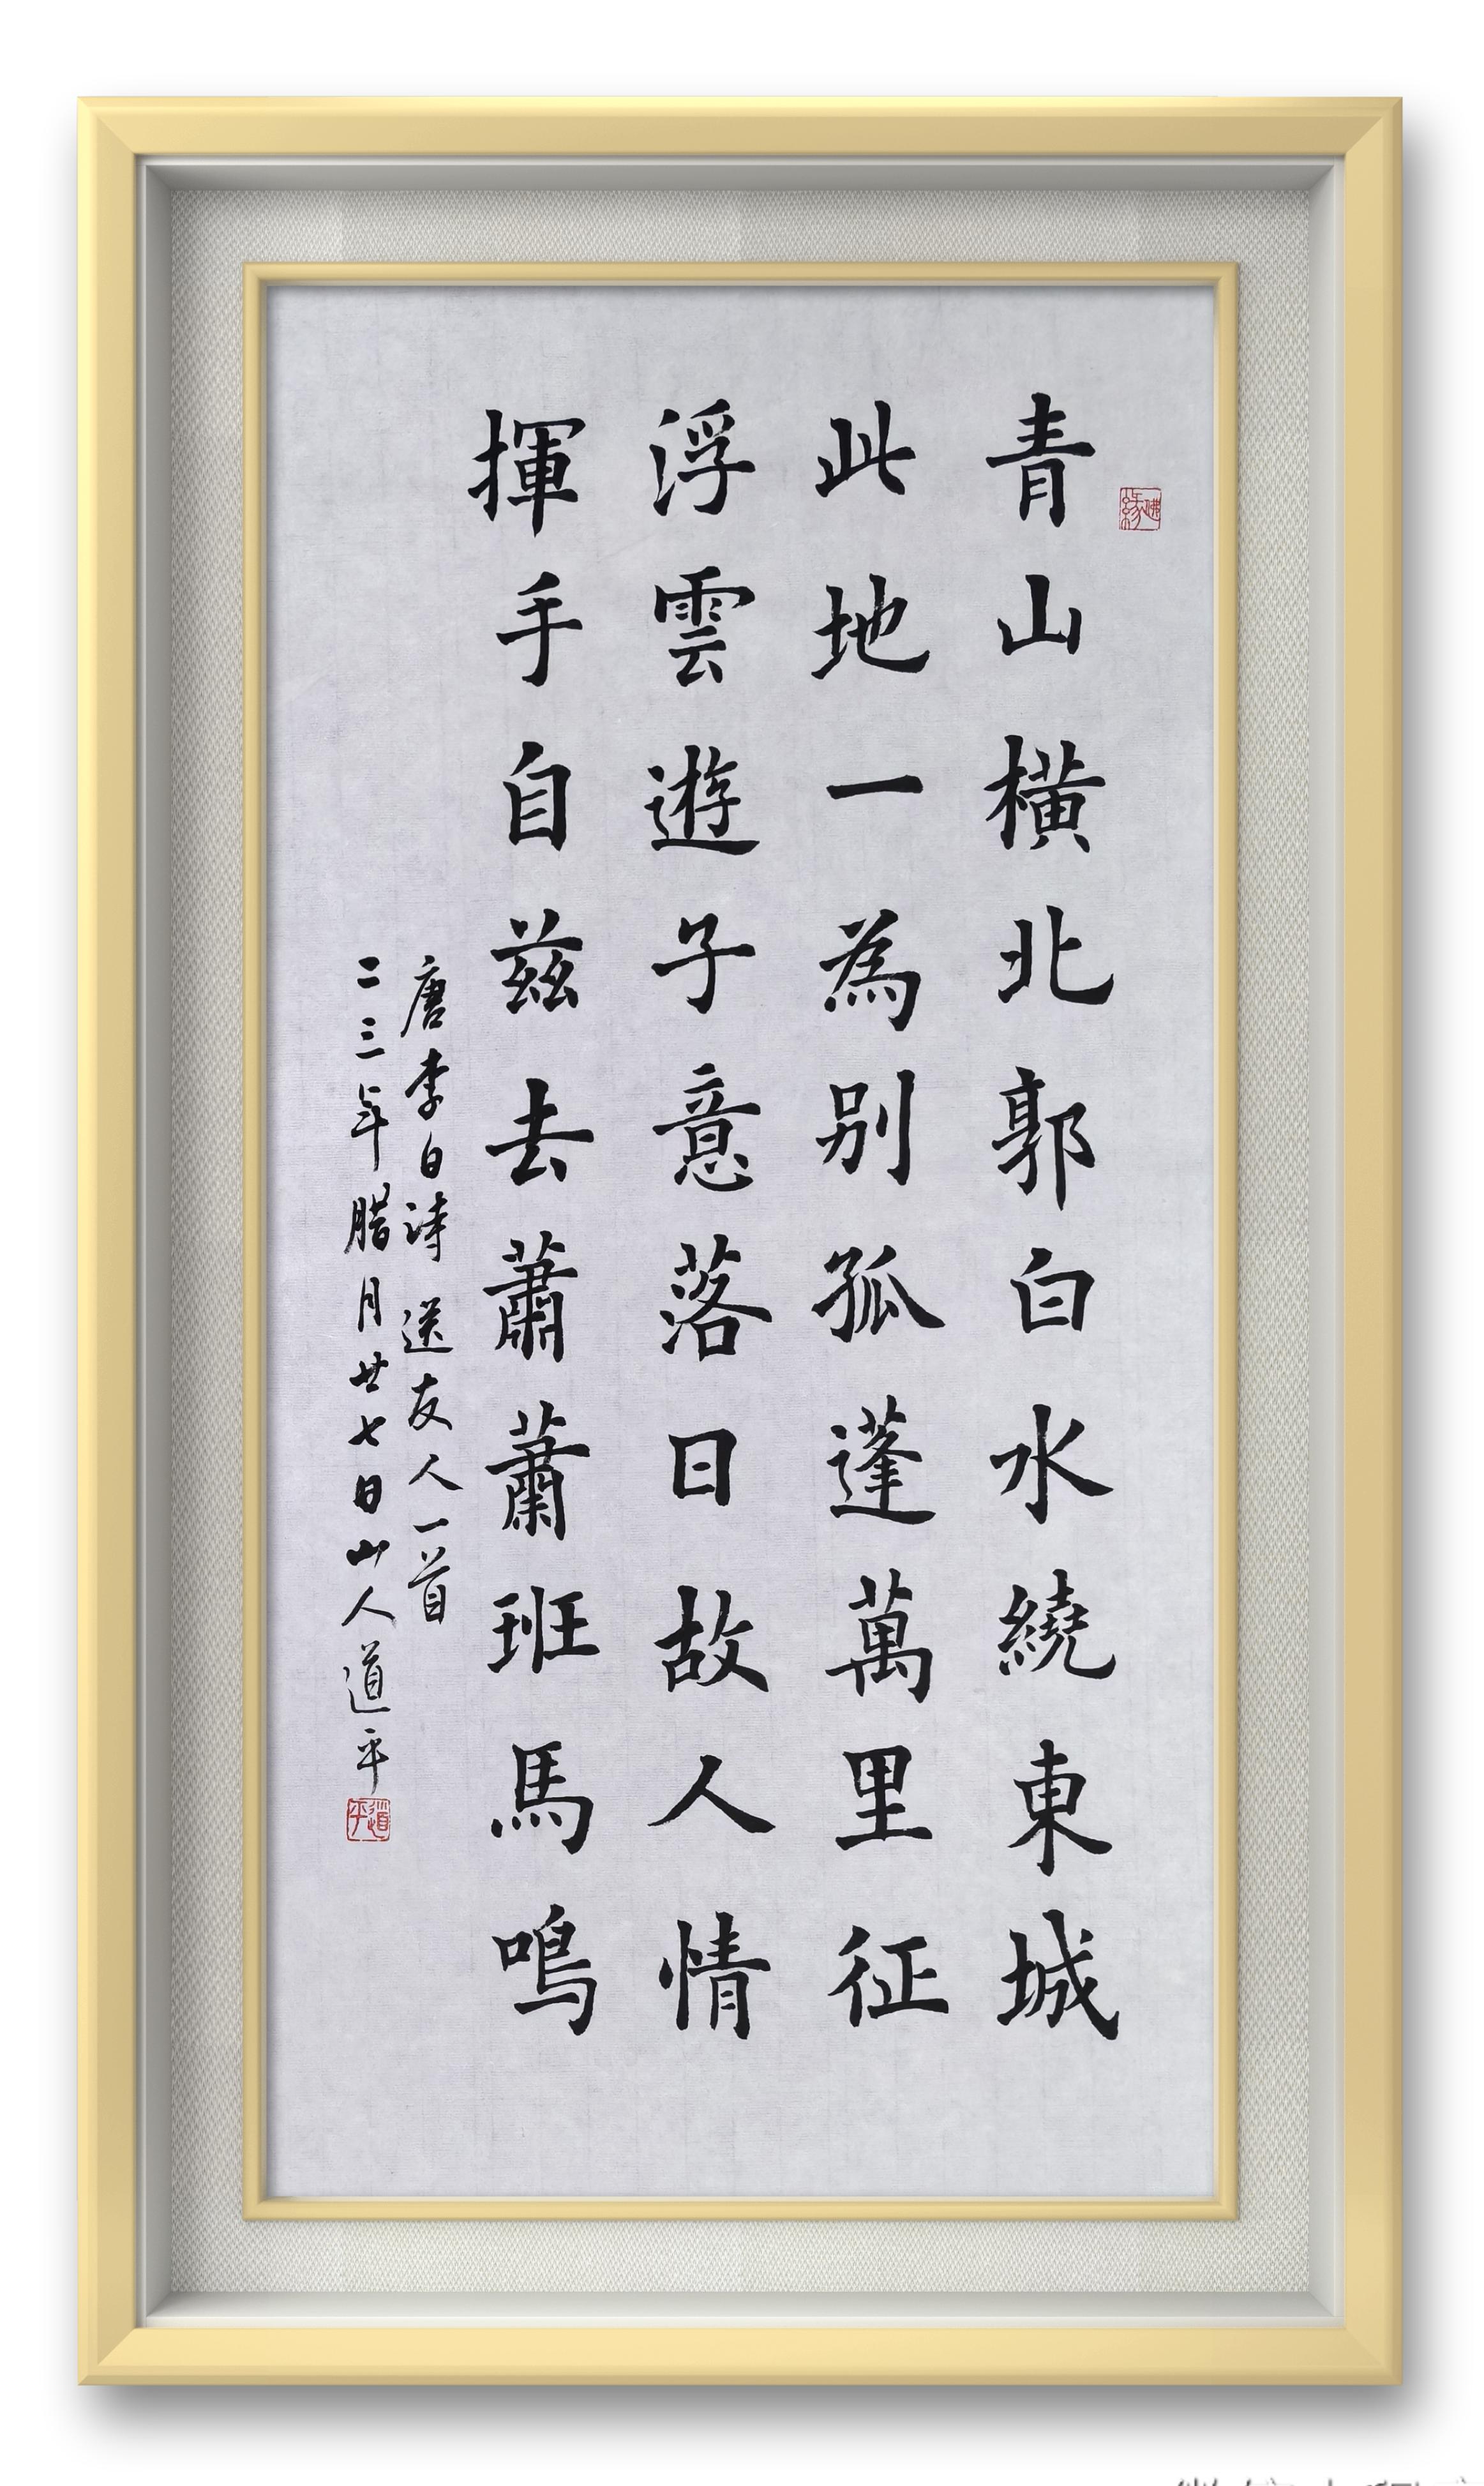 青山橫北郭白水繞東城
此地一為别孤蓬萬里征
浮雲遊子意落日故人情
揮手自兹去蕭蕭班馬鳴
唐李白诗送友人一首
二三年腊月廿七日山人道平
佛緣
道平